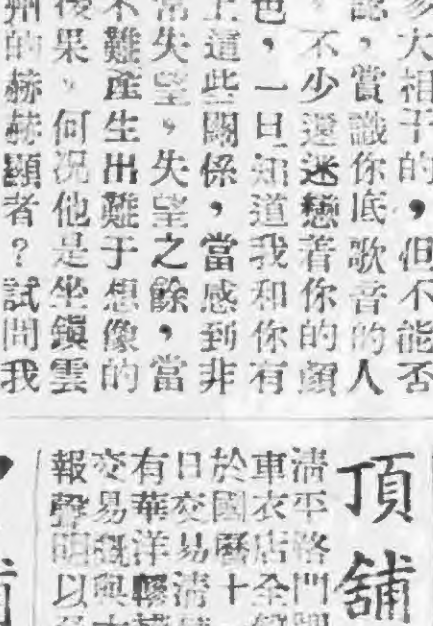 多大相干的，但不能否
認，賞識你底歌音的人
，不少還迷戀着你的顏
色，一旦知道我和你有
上這些關係，當感到非
常失望，失望之餘，當
不難產生出難于想像的
後果。何況他是坐鎭雲
州的赫赫顯者？試問我
頂舖
淸平路門
車衣店全
於國曆十
日交易淸
有華洋轇
交易槪與
報聲明以